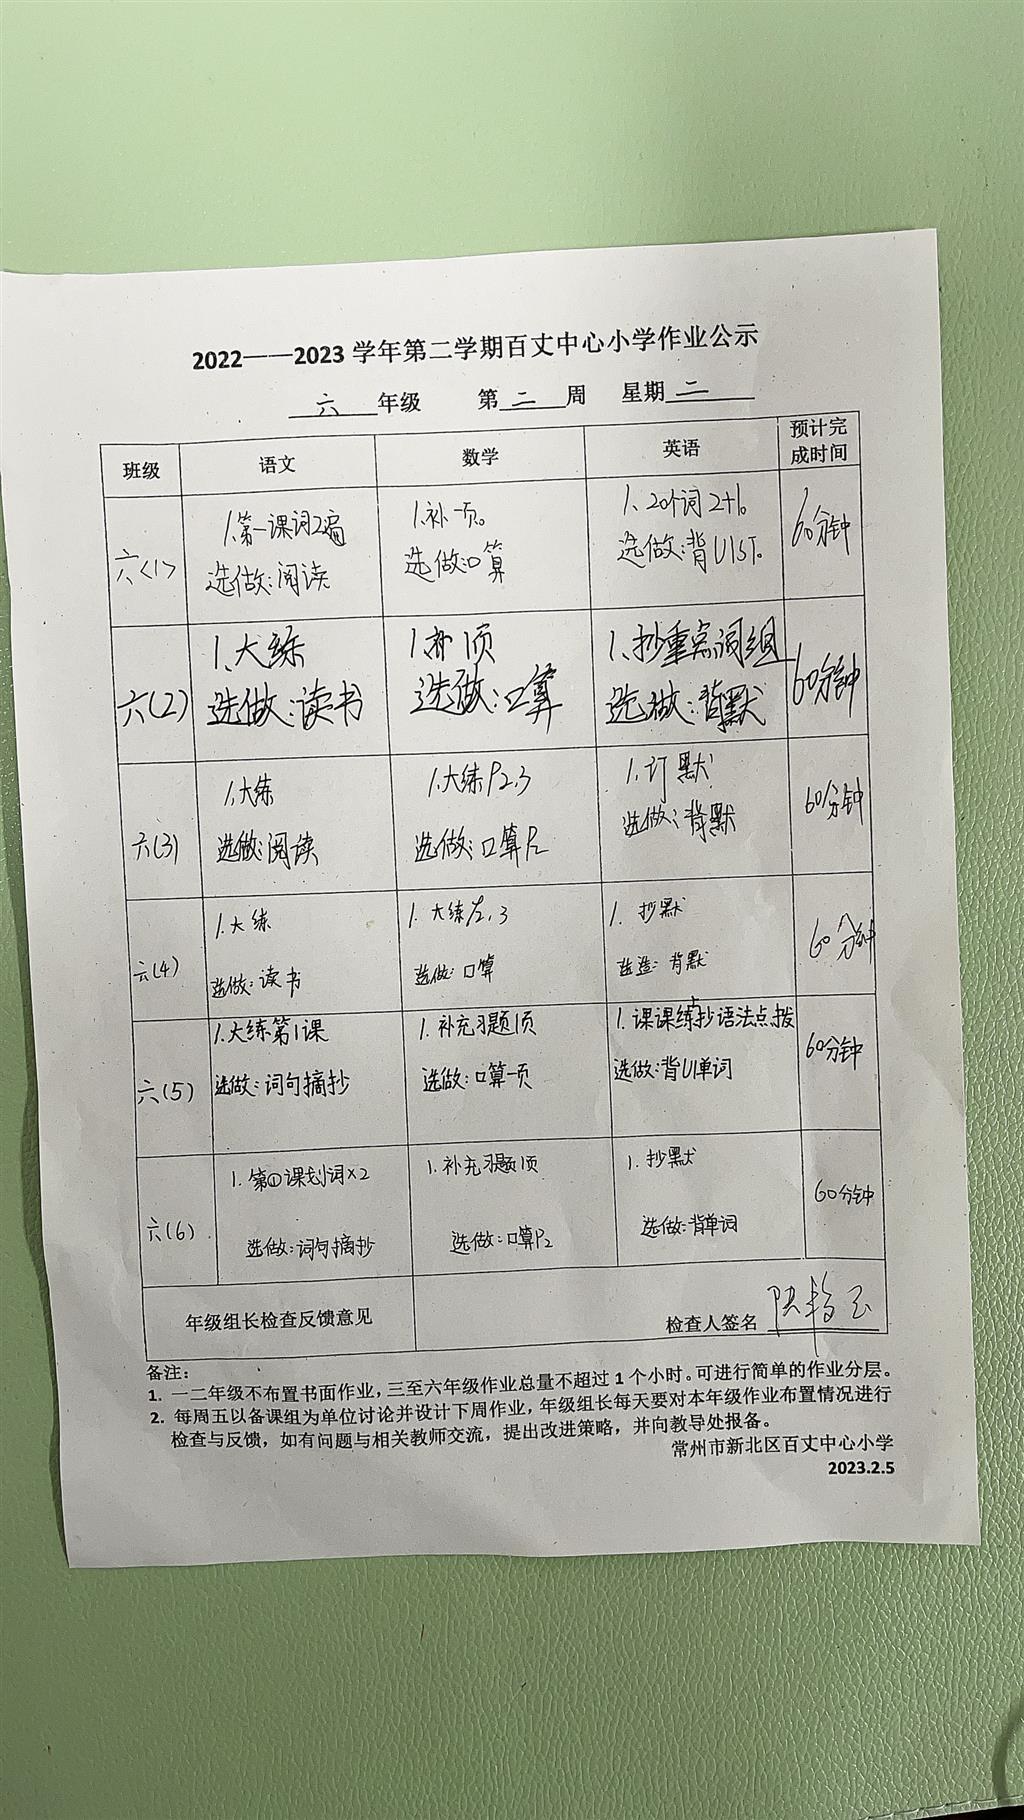 2022——2023 学年第二学期百丈中心小学作业公示
六 年级 第 二 周 星期 二
班级 语文 数学 英语 预计完成时间
六(1)
1.第一课词2遍
选做:阅读
1.补一页。
选做:口算
1、20个词2+1。
选做:背U1ST。
60分钟
六(2)
1、大练
选做:读书
1.补1页
选做:口算
1、抄重点词组
选做:背默
60分钟
六(3)
1.大练
选做:阅读
1.大练P2.3
选做:口算P2
1.订默
选做:背默
60分钟
六(4)
1.大练
选做:读书
1.大练P2,3
选做:口算
1.抄默
背默
60分钟
六(5)
1.大练第1课
选做:词句摘抄
1.补充习题1页
选做:口算一页
1.课课练抄语法点拨
选做:背U1单词
60分钟
六(6)
1.第①课划词×2
选做:词句摘抄
1.补充习题1页
选做:口算P2
1.抄默
选做:背单词
60分钟
年级组长检查反馈意见
检查人签名
备注:
1. 一二年级不布置书面作业,三至六年级作业总量不超过1个小时。可进行简单的作业分层。
2. 每周五以备课组为单位讨论并设计下周作业,年级组长每天要对本年级作业布置情况进行
检查与反馈,如有问题与相关教师交流,提出改进策略,并向教导处报备。
常州市新北区百丈中心小学
2023.2.5